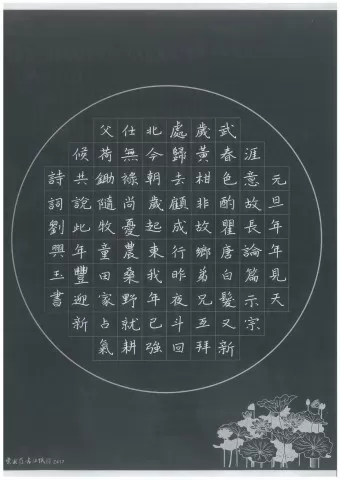 元旦年年見天
涯意故長論篇示宗
武春色酌瞿唐白髮又新
歲黃柑非故鄉弟兄互拜
處歸去顧成行昨夜斗回
北今朝歲起東我年已強
仕無祿尚憂農桑野就耕
父荷鋤隨牧童田家占氣
候共說此年豐迎新
詩詞劉興玉書